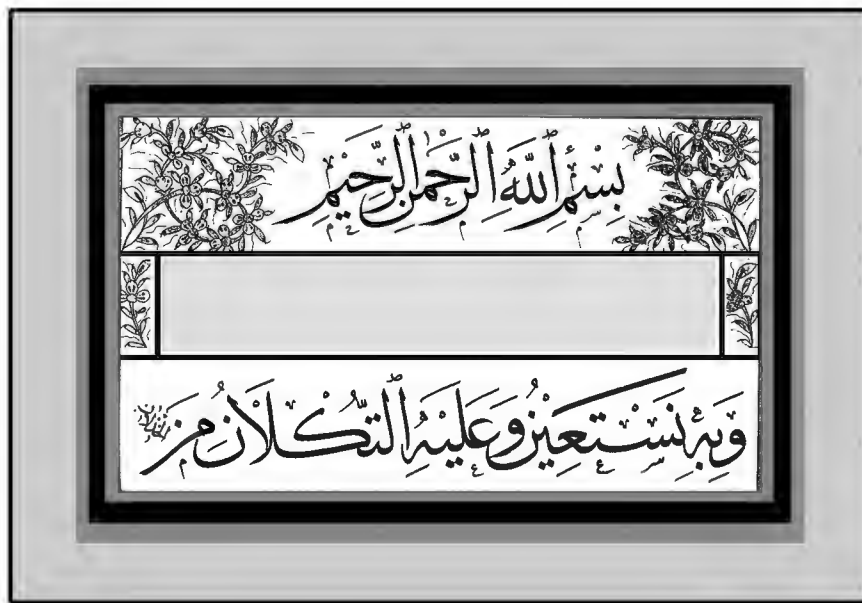 بِسْمِ ٱللَّهِ ٱلرَّحْمَٰنِ ٱلرَّحِيمِ
وَبِهِ نَسْتَعِينُ وَعَلَيْهِ ٱلتُّكْلَانُ